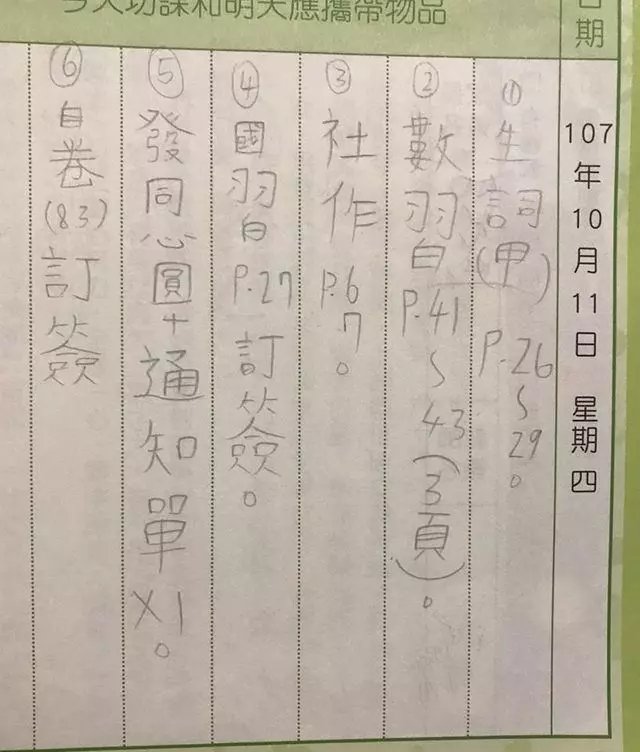 今天功課和明天應攜帶物品
日期
107年10月11日 星期四
① 生詞(甲) P.26~29。
② 數習 P.41~43(3頁)。
③ 社作 P.6 7。
④ 國習 P.27 訂簽。
⑤ 發同心圓+通知單X1。
⑥ 自卷(83)訂簽